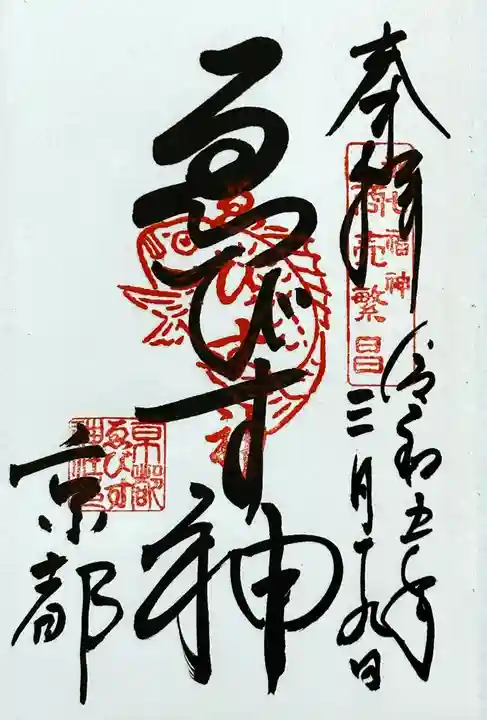 奉拝
七福神
商売繁昌
令和五年
三月十九日
ゑびす神
ゑびす神
京都
京都
ゑびす
神社